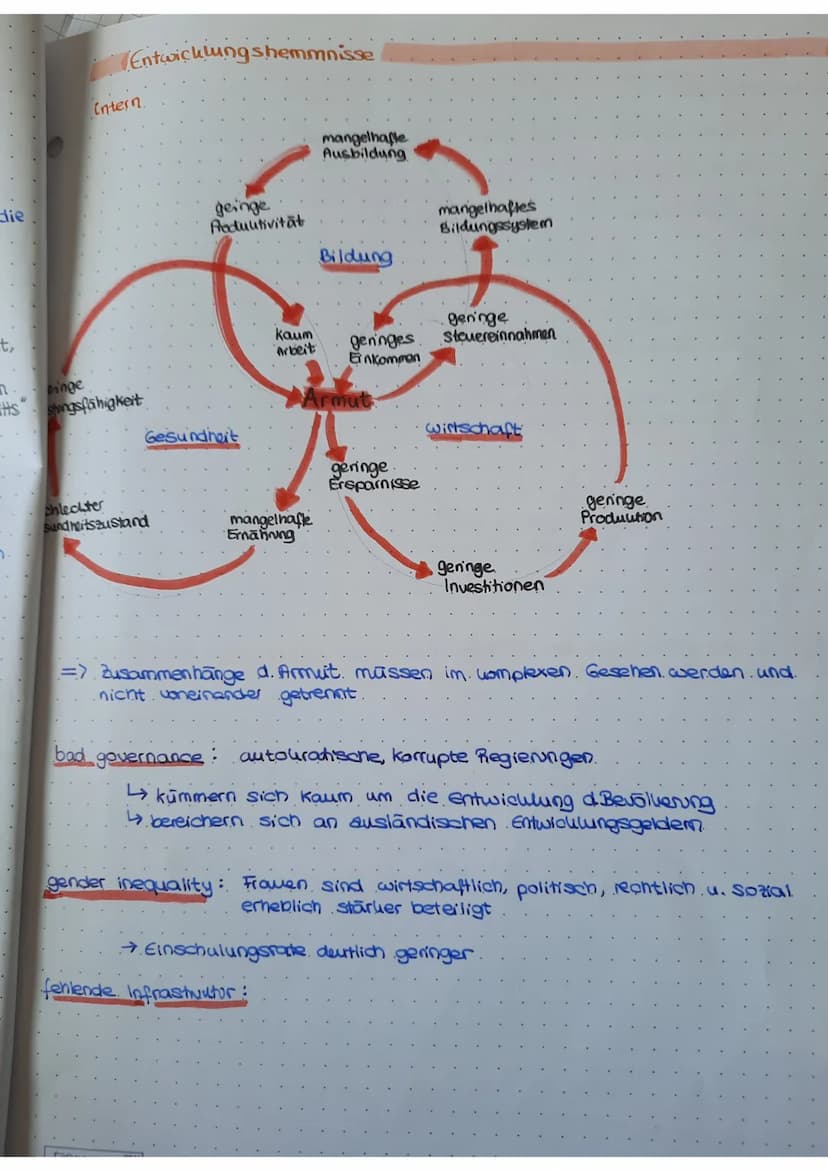 Entwicklungshemmnisse
Intern
mangelhafte
Ausbildung
geinge
Produktivität
mangelhaftes
Bildungssystem
die
Bildung
kaum
Arbeit
geringes
Einkommen
geringe
Steuereinnahmen
t,
n
hts"
einge
stungsfähigkeit
Armut
Gesundheit
Wirtschaft
geringe
Ersparnisse
chlechter
sundheitszustand
mangelhafte
Ernährung
geringe
Produktion
geringe
Investitionen
=> Zusammenhänge d. Armut müssen im komplexen Gesehen werden und
nicht voneinander getrennt
bad governance: autokratische, korrupte Regierungen
↳ kümmern sich kaum um die Entwicklung d. Bevölkerung
↳ bereichern sich an ausländischen Entwicklungsgeldern
gender inequality: Frauen sind wirtschaftlich, politisch, rechtlich u. sozial
erheblich stärker beteiligt
→ Einschulungsrate deutlich geringer
fehlende Infrastruktur: